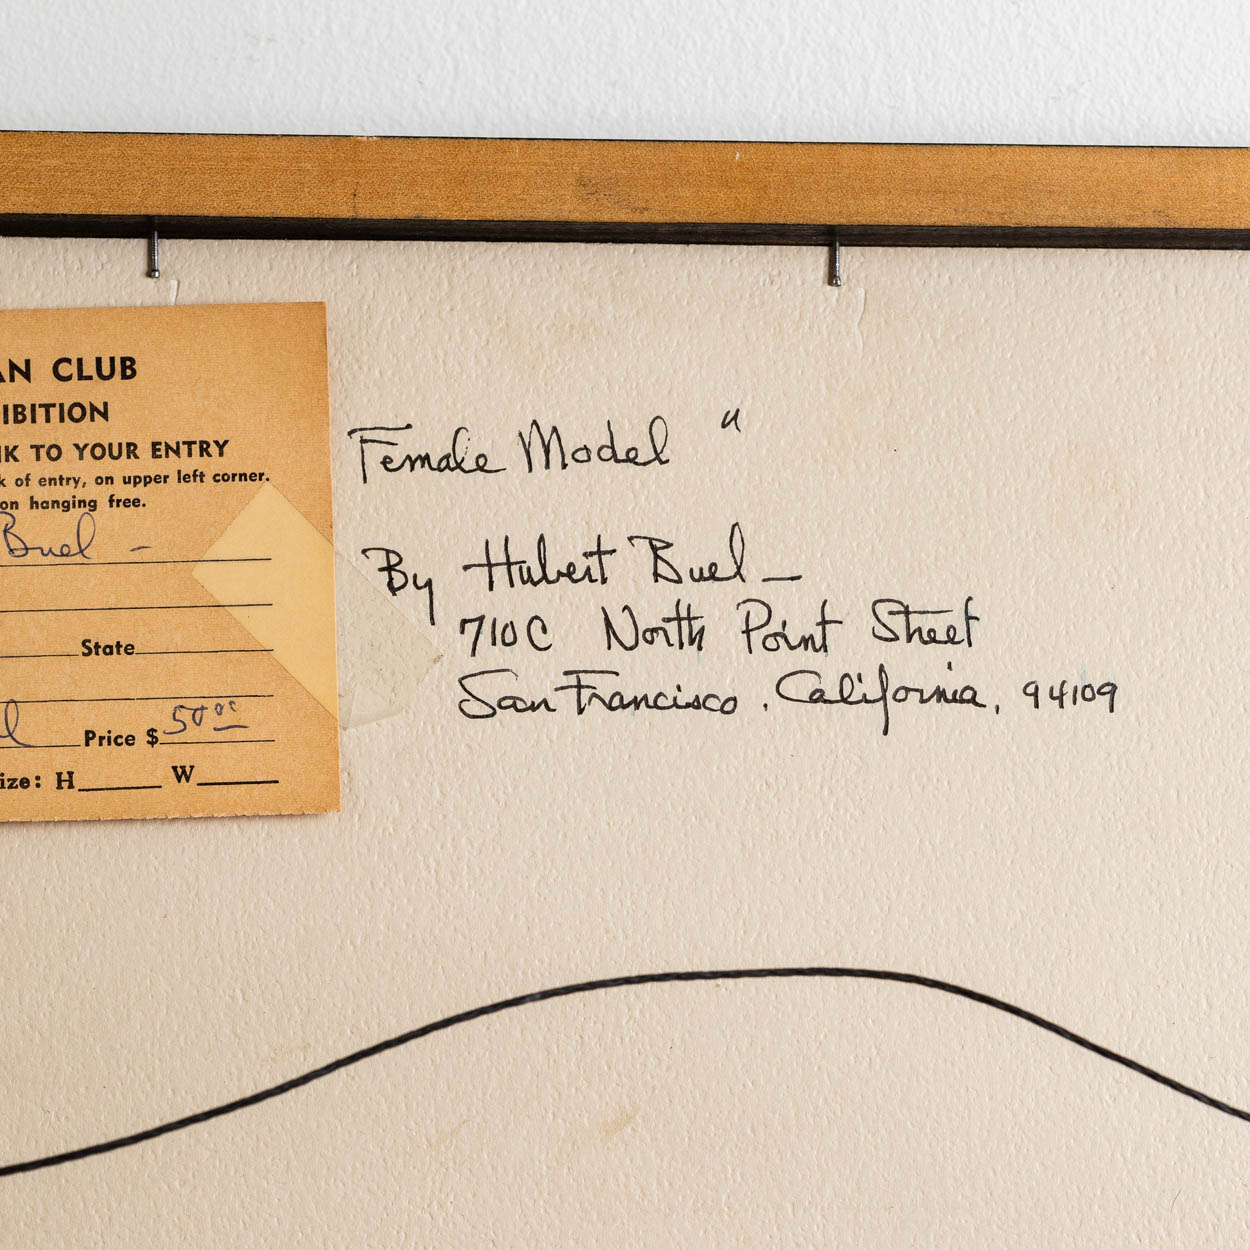 AN CLUB
IBITION
K TO YOUR ENTRY
k of entry, on upper left corner.
on hanging free.
Buel –
State
l Price $ 50⁰⁰
ize: H W
Female Model "
By Hubert Buel –
710C North Point Street
San Francisco, California, 94109